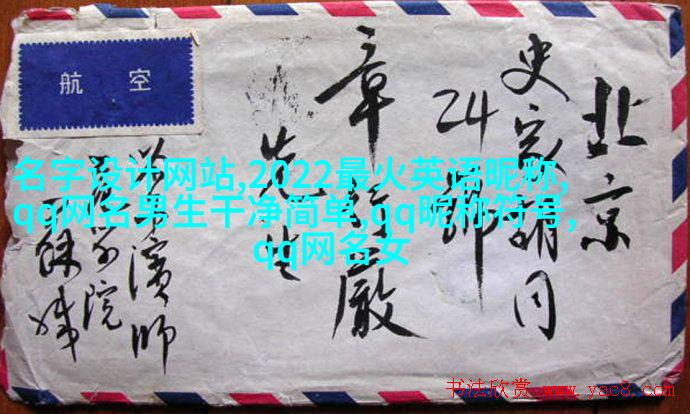 航空
北京
史家胡同
24
章
嚴
先生
濱師
院
名字设计网站,2022最火英语昵称,
qq网名男生干净简单,qq昵称符号,
qq网名女
书法欣赏 www.yac8.com